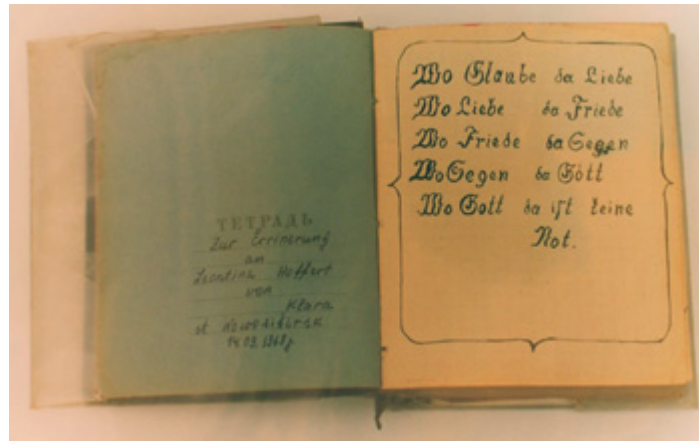 ТЕТРАДЬ
Zur Errinerung
an
Leontina Hoffert
von
Klara
st Nowosibirsk
14.09.1968j
Wo Glaube da Liebe
Wo Liebe da Friede
Wo Friede da Segen
Wo Segen da Gott
Wo Gott da ist keine
Not.